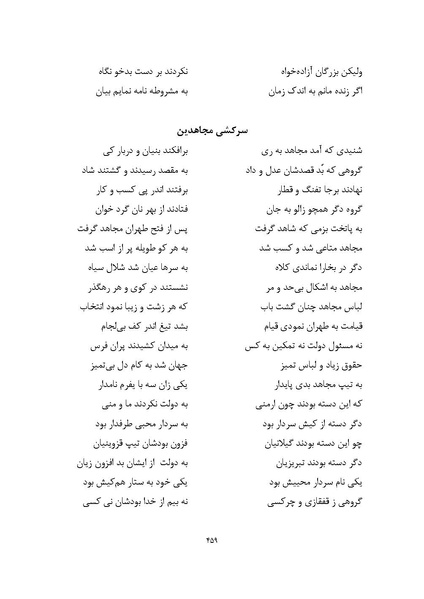 ولیکن بزرگان آزاده‌خواه نکردند بر دست بدخو نگاه
اگر زنده مانم به اندک زمان به مشروطه نامه نمایم بیان
سرکشی مجاهدین
شنیدی که آمد مجاهد به ری برافکند بنیان و دربار کی
گروهی که بُد قصدشان عدل و داد به مقصد رسیدند و گشتند شاد
نهادند برجا تفنگ و قطار برفتند اندر پی کسب و کار
گروه دگر همچو زالو به جان فتادند از بهر نان گرد خوان
به پاتخت بزمی که شاهد گرفت پس از فتح طهران مجاهد گرفت
مجاهد متاعی شد و کسب شد به هر کو طویله پر از اسب شد
دگر در بخارا نماندی کلاه به سرها عیان شد شلال سیاه
مجاهد به اشکال بی‌حد و مر نشستند در کوی و هر رهگذر
لباس مجاهد چنان گشت باب که هر زشت و زیبا نمود انتخاب
قیامت به طهران نمودی قیام بشد تیغ اندر کف بی‌لجام
نه مسئول دولت نه تمکین به کس به میدان کشیدند پران فرس
حقوق زیاد و لباس تمیز جهان شد به کام دل بی‌تمیز
به تیپ مجاهد بدی پایدار یکی زان سه با یفرم نامدار
که این دسته بودند چون ارمنی به دولت نکردند ما و منی
دگر دسته از کیش سردار بود به سردار محیی طرفدار بود
چو این دسته بودند گیلانیان فزون بودشان تیپ قزوینیان
دگر دسته بودند تبریزیان به دولت از ایشان بد افزون زیان
یکی نام سردار محبیش بود یکی خود به ستار هم‌کیش بود
گروهی ز قفقازی و چرکسی نه بیم از خدا بودشان نی کسی
۴۵۹